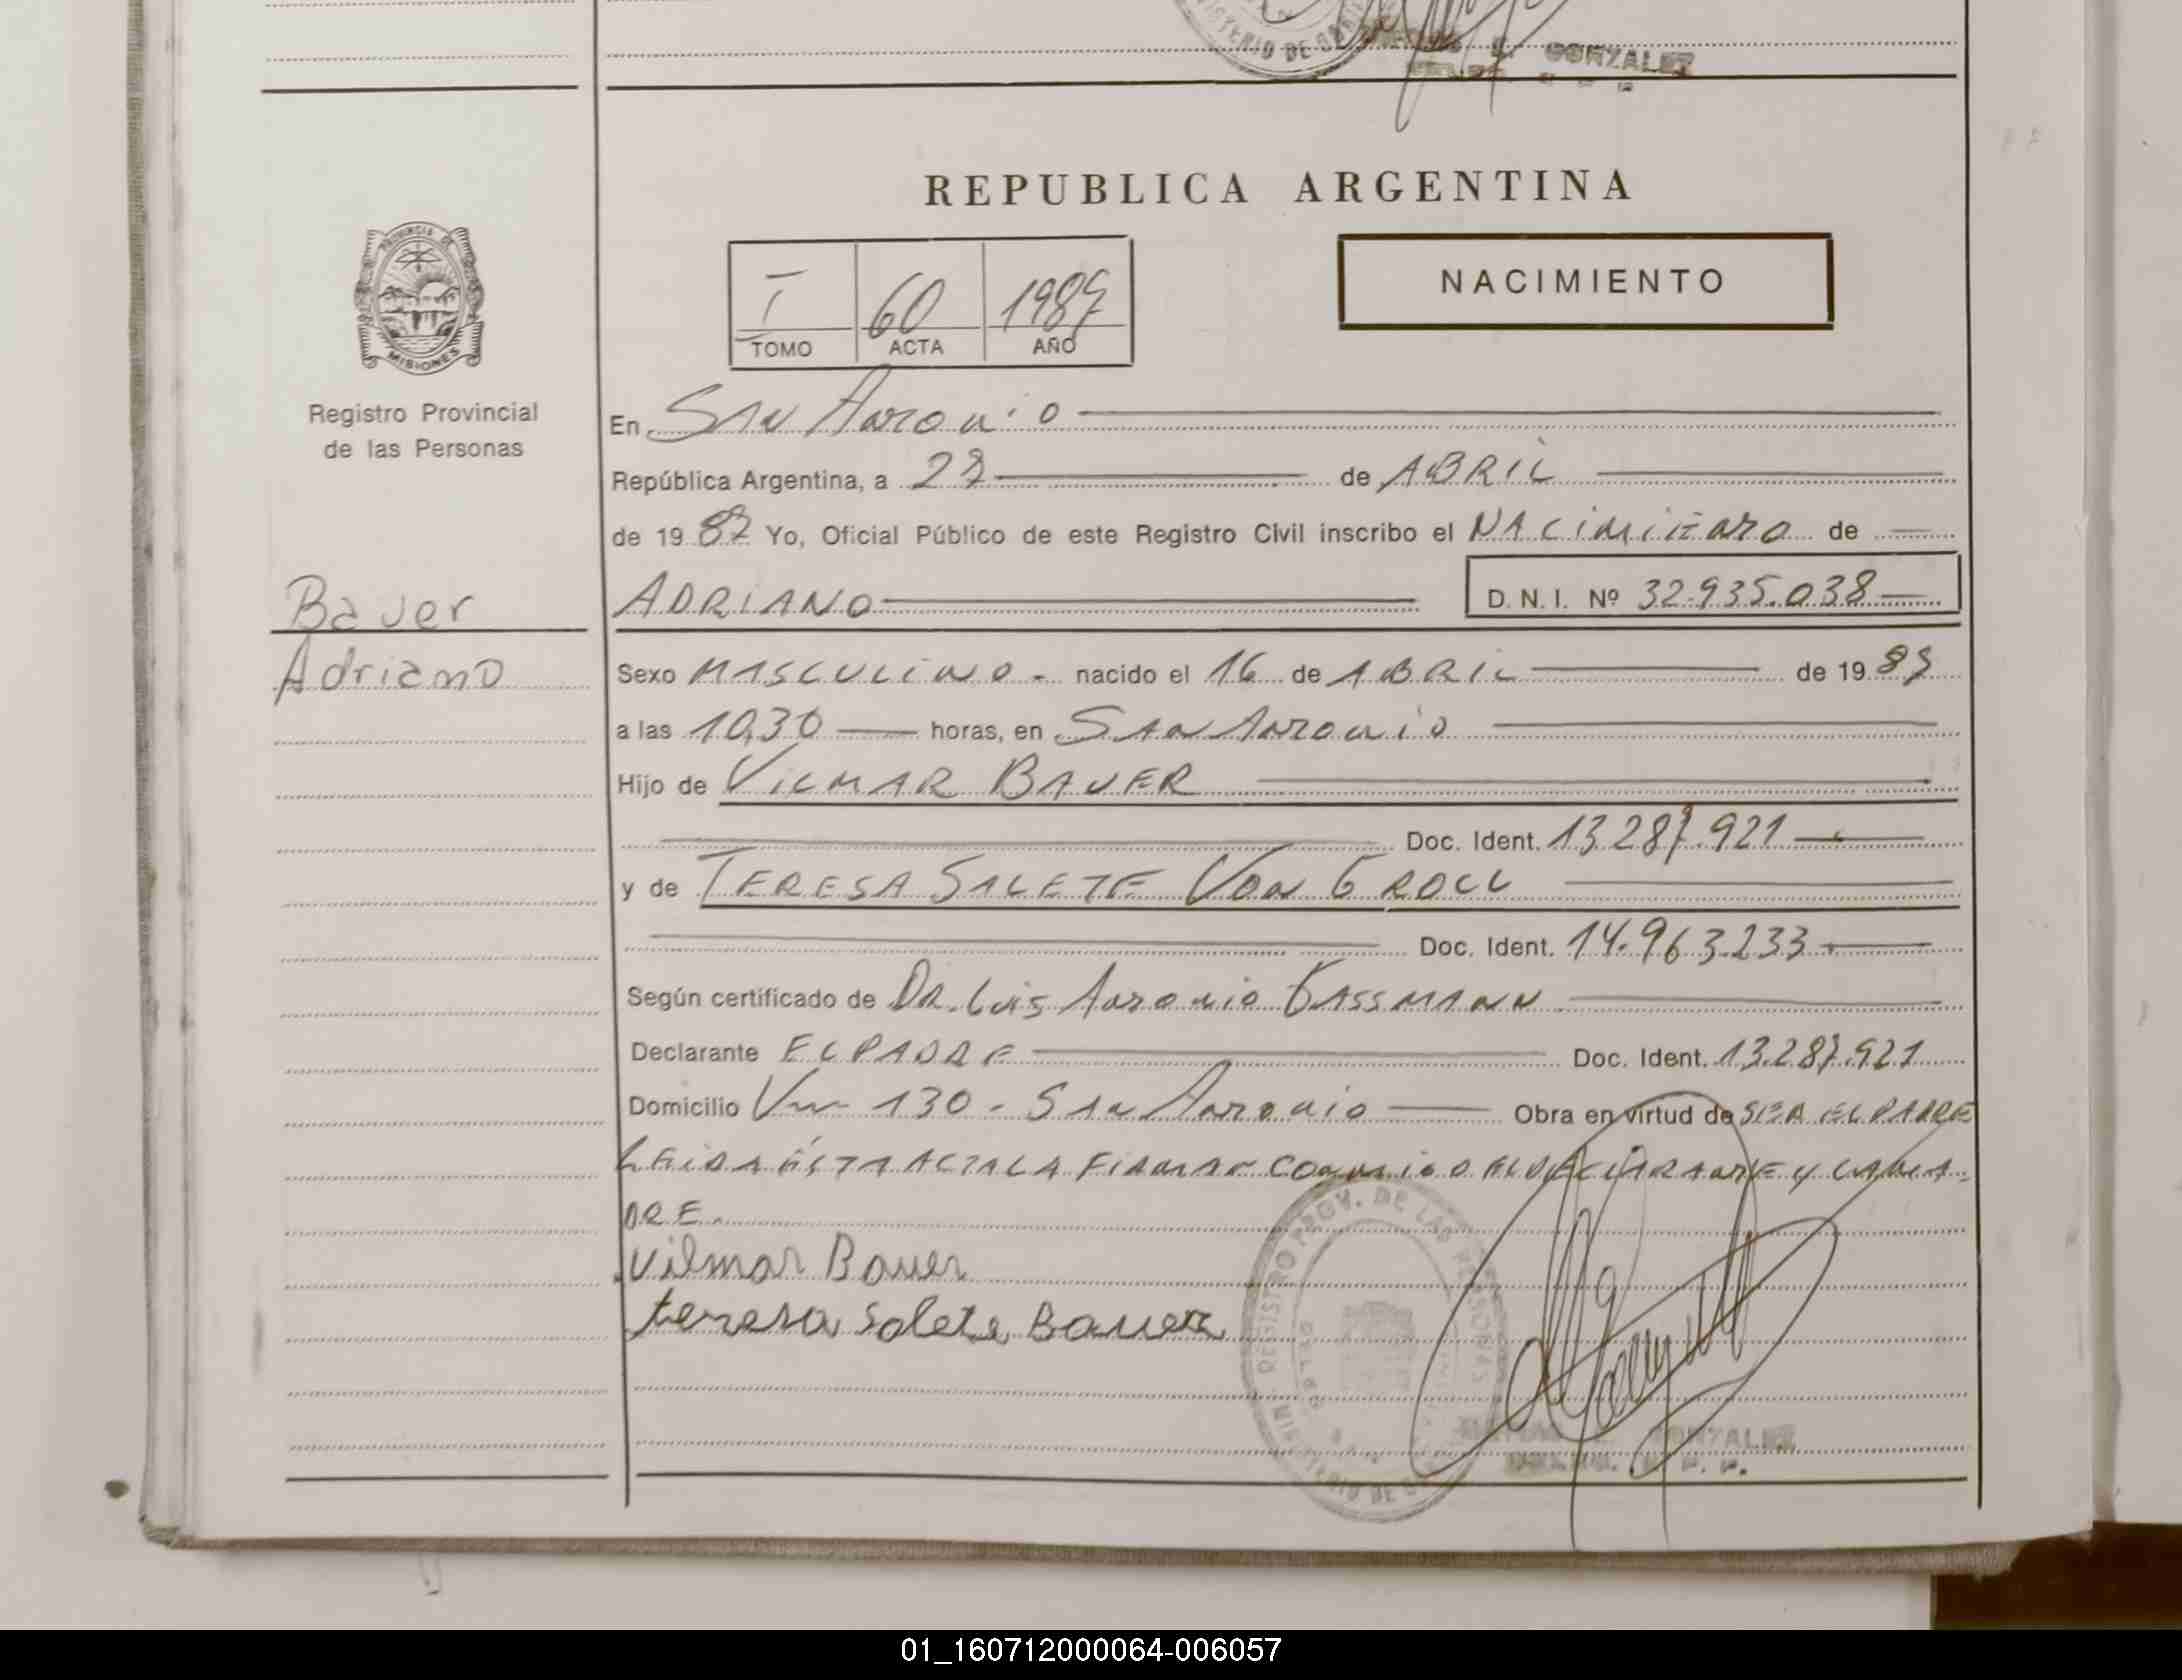 MINISTERIO DE GOB
GONZALEZ
REPUBLICA ARGENTINA
PROVINCIA DE
MISIONES
I 60 1987
TOMO ACTA AÑO
NACIMIENTO
Registro Provincial
de las Personas
En SAN ANTONIO
República Argentina, a 27 de ABRIL
de 1987 Yo, Oficial Público de este Registro Civil inscribo el NACIMIENTO de
Bauer
ADRIANO D. N. I. Nº 32.935.038
Adriano
Sexo MASCULINO - nacido el 16 de ABRIL de 1987
a las 10,30 horas, en SAN ANTONIO
Hijo de VILMAR BAUER
Doc. Ident. 13.287.921
y de TERESA SALETE VON GROLL
Doc. Ident. 14.963.233
Según certificado de DR. LUIS ANTONIO GASSMANN
Declarante EL PADRE Doc. Ident. 13.287.921
Domicilio 130 - SAN ANTONIO Obra en virtud de SER EL PADRE
LEIDA ÉSTA ACTA LA FIRMAN CONMIGO EL DECLARANTE Y LA MA-
DRE.
Vilmar Bauer
teresa Salete Bauer
REGISTRO PROV. DE LAS PERSONAS
GONZALEZ
01_160712000064-006057